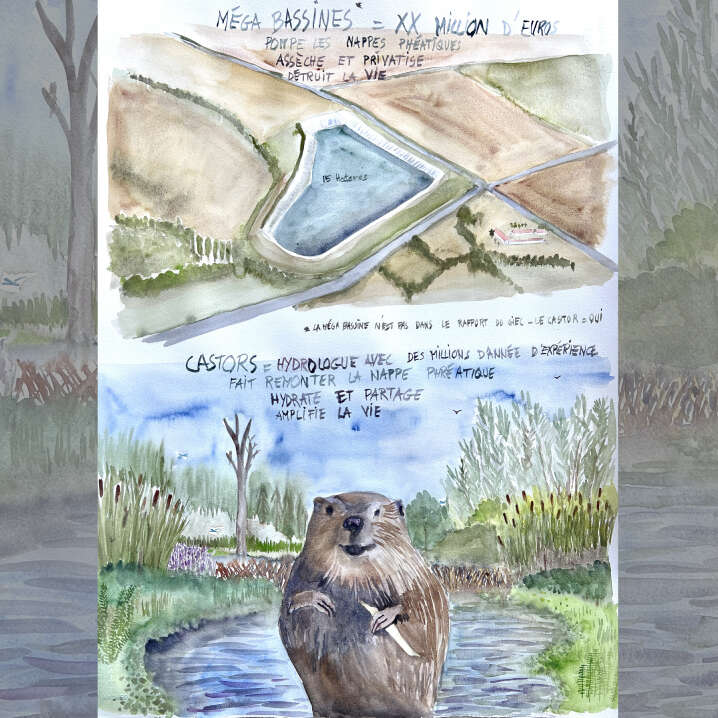 MÉGA BASSINES * = XX MILLION D'EUROS
POMPE LES NAPPES PHÉATIQUES
ASSÈCHE ET PRIVATISE
DÉTRUIT LA VIE
15 Hectares
* LA MÉGA BASSINE N'EST PAS DANS LE RAPPORT DU GIEC - LE CASTOR = OUI
CASTORS = HYDROLOGUE AVEC DES MILLIONS D'ANNÉE D'EXPÉRIENCE
FAIT REMONTER LA NAPPE PHRÉATIQUE
HYDRATE ET PARTAGE
AMPLIFIE LA VIE